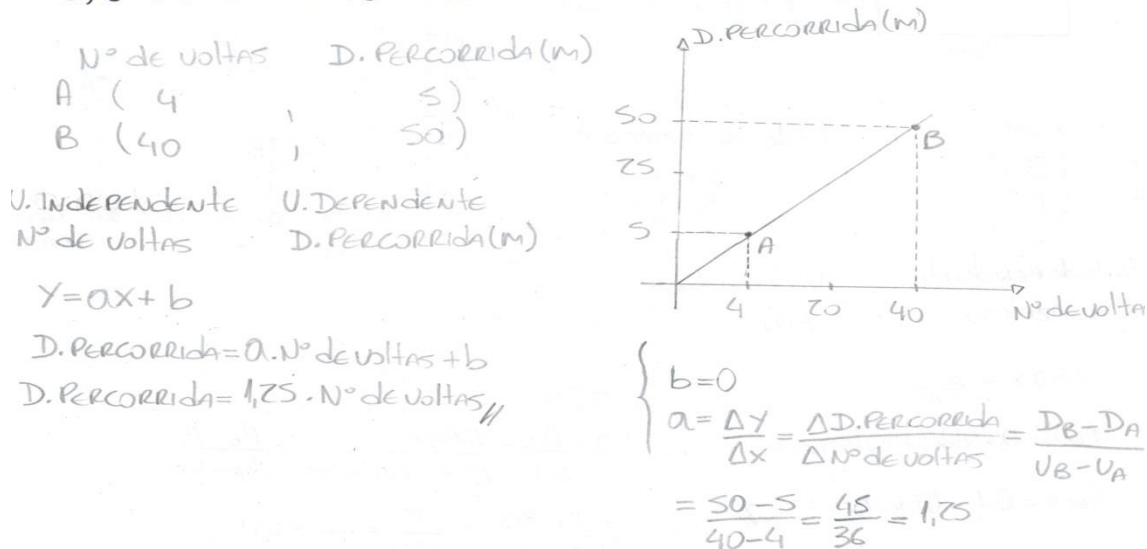 Nº de voltas D. PERCORRIda (m)
A ( 4 ; 5)
B (40 ; 50)
V. INdEPENdENtE V. DEPENdENtE
Nº dE VoltAs D. PERCORRIda (m)
Y=ax+b
D. PERCORRIda = a. Nº dE voltAs + b
D. PERCORRIda = 1,25 . Nº dE VoltAs //
D. PERCORRIda (m)
50
25
5
B
A
4 20 40 Nº dE volta
b=0
a = ΔY/ΔX = ΔD. PERCORRIda/ΔNº dE voltAs = (D_B - D_A)/(V_B - V_A)
= (50-5)/(40-4) = 45/36 = 1,25